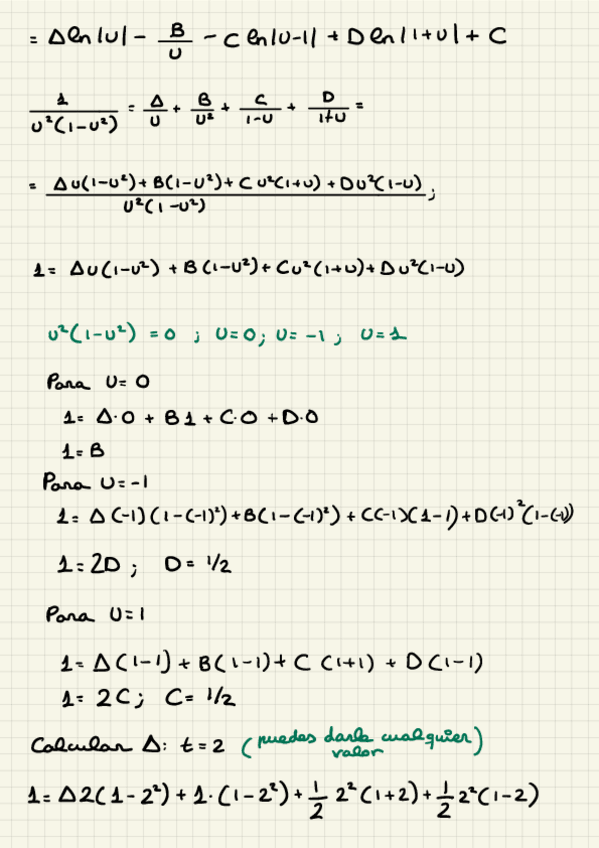 = A ln|u| - B/u - C ln|u-1| + D ln|1+u| + C
1/(u²(1-u²)) = A/u + B/u² + C/(1-u) + D/(1+u) =
= (A u(1-u²) + B(1-u²) + C u²(1+u) + D u²(1-u))/(u²(1-u²)) ;
1 = A u(1-u²) + B(1-u²) + C u²(1+u) + D u²(1-u)
u²(1-u²) = 0 ; u=0; u=-1; u=1
Para u=0
1 = A·0 + B1 + C·0 + D·0
1 = B
Para u=-1
1 = A(-1)(1-(-1)²) + B(1-(-1)²) + C(-1)(1-1) + D(-1)²(1-(-1))
1 = 2D ; D = 1/2
Para u=1
1 = A(1-1) + B(1-1) + C(1+1) + D(1-1)
1 = 2C; C = 1/2
Calcular A: t=2 (puedes darle cualquier
valor)
1 = A2(1-2²) + 1·(1-2²) + 1/2 2²(1+2) + 1/2 2²(1-2)